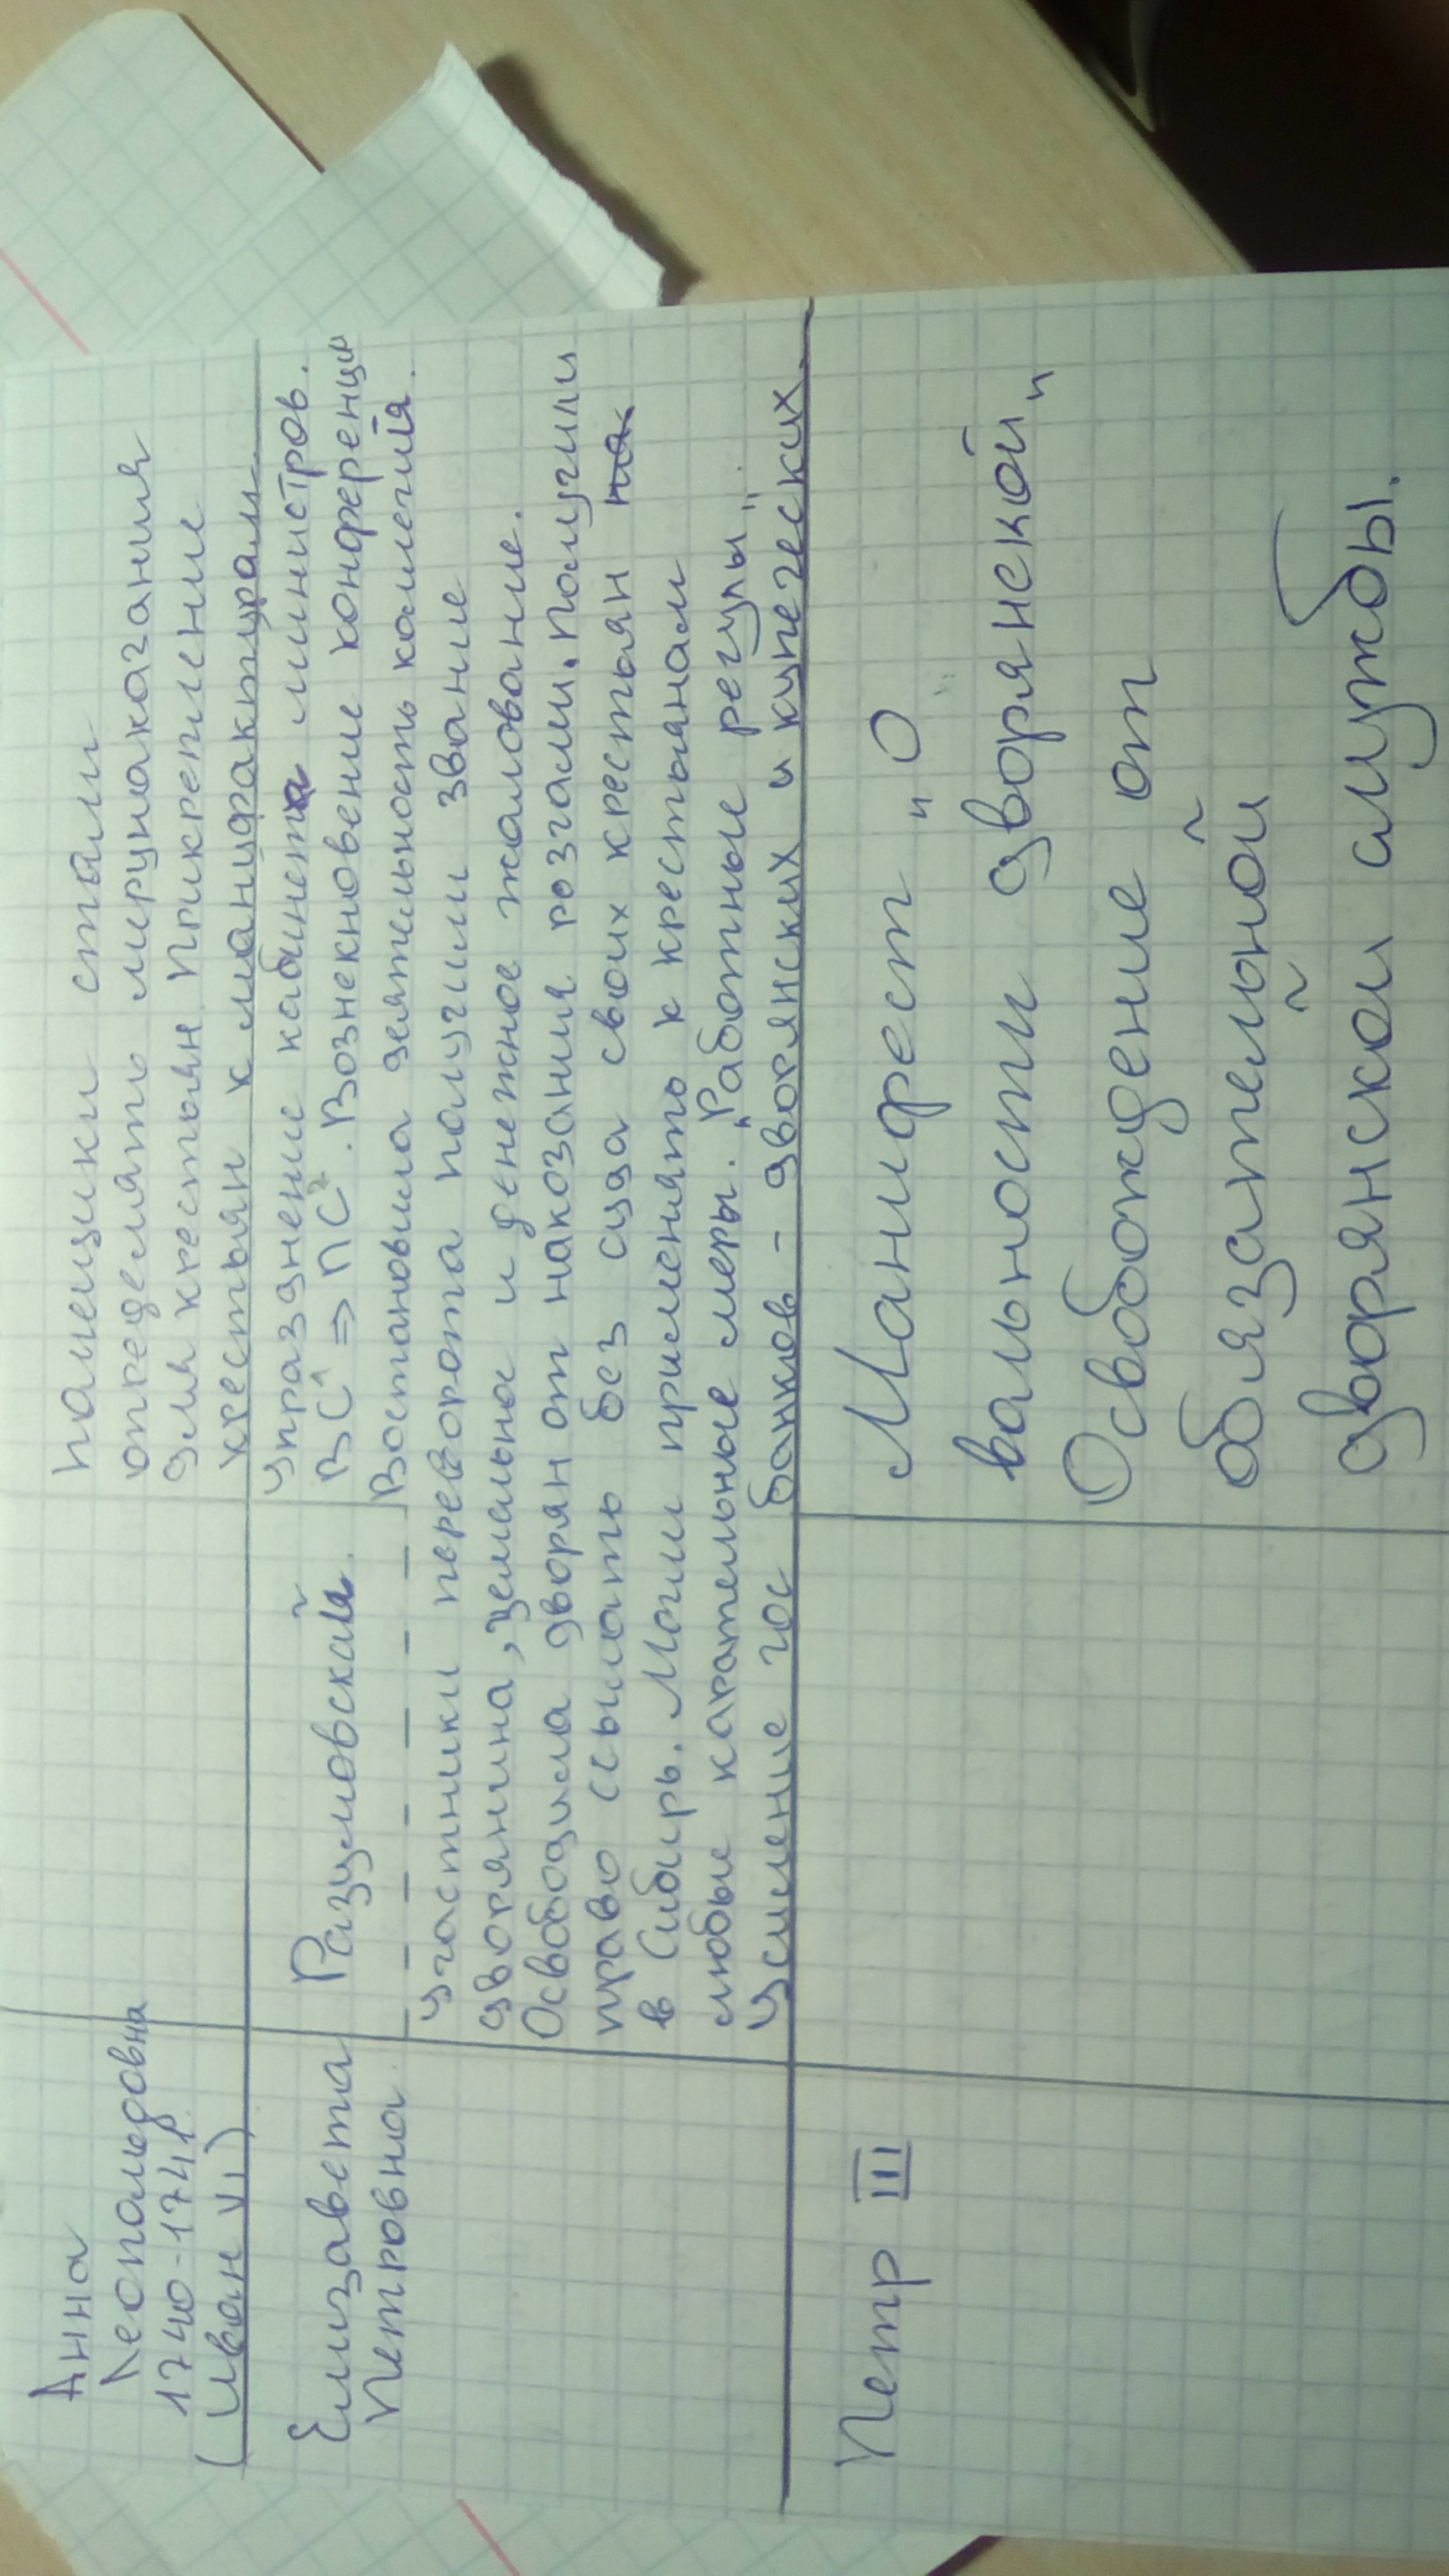 Анна
Леопольдовна
1740-1741
(Иван VI)
помещики стали
определять меру наказания
для крестьян. Прикрепление
крестьян к мануфактурам
Елизавета
Петровна
Разумовский.
Упразднение кабинета министров.
ВС => ПС. Возникновение конференци
Востановила деятельность колегий.
Участники переворота получили звание
дворянина, земельное и денежное жалование.
Освободила дворян от наказания розгами. Получили
право ссылать без суда своих крестьян на
в Сибирь. Могли применять к крестьянам
любые карательные меры. "Работные регулы".
Усиление гос банков - дворянских и купеческих.
Петр III
Манифест "О
вальности дворянской"
Освобождение от
обязательной
дворянской службы.